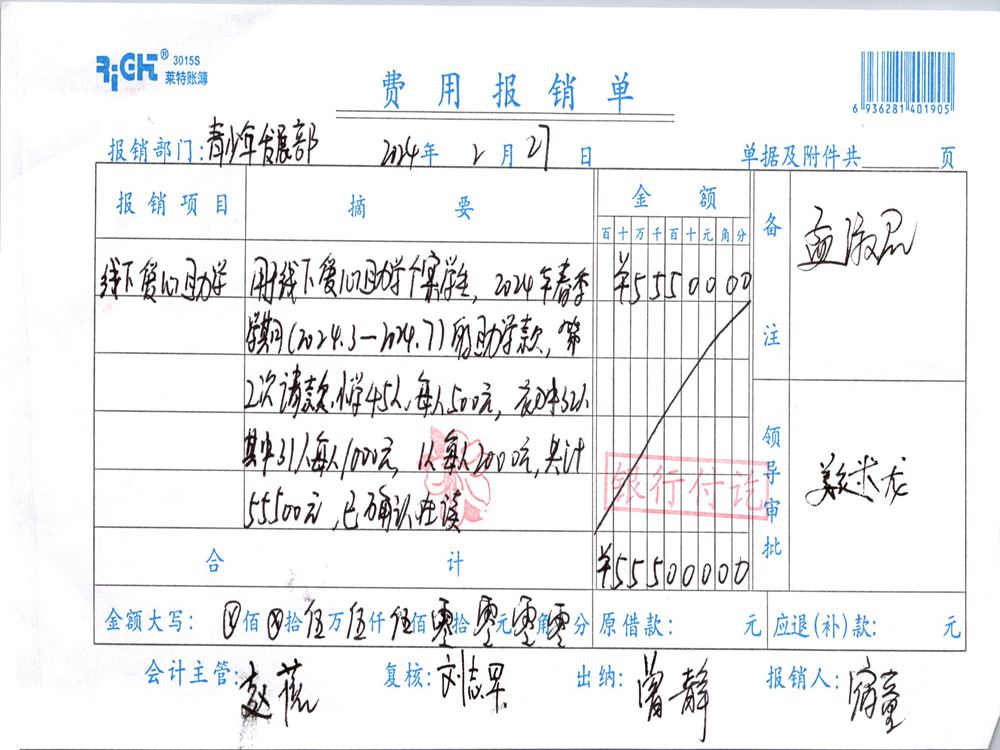 RiGHT® 3015S
莱特账簿
费用报销单
6 936281 401905
报销部门:青少年发展部 2024年 2月27日 单据及附件共 页
报销项目 摘要 金额 备注
百十万千百十元角分
线下爱心助学 用于线下爱心助学个案学生，2024年春季 ¥5550000
学期(2024.3—2024.7)的助学款，第
2次请款，小学45人，每人500元，初中32人
其中31人每人1000元，1人每人2000元，共计
55500元，已确认在读
银行付讫
领导审批
合计 ¥5550000
金额大写: 佰 拾伍万伍仟伍佰零拾零元零角零分 原借款: 元 应退(补)款: 元
会计主管: 复核:刘志 出纳:曾静 报销人: